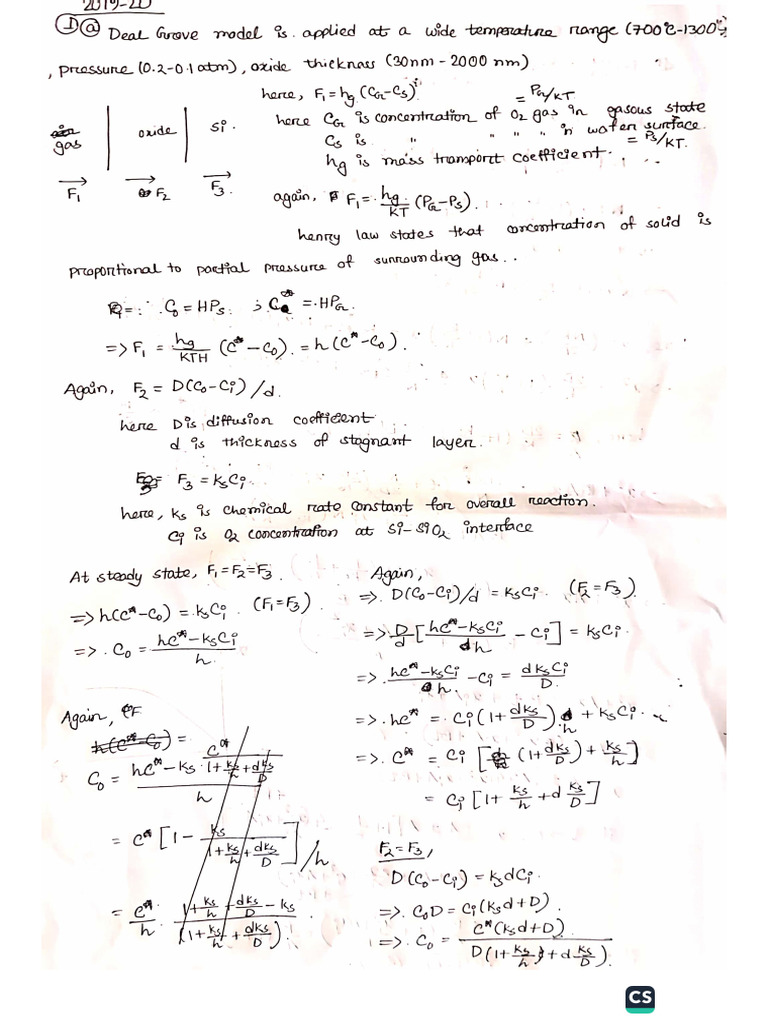 2019-20
① ⓐ Deal Grove model is applied at a wide temperature range (700°C-1300°C)
, pressure (0.2-0.1atm), oxide thicknass (30nm - 2000 nm)
here, F₁ = hg (CG - Cs)
= PG/KT
here CG is concentration of O2 gas in gasous state
Cs is " " " " in wafer surface.
= Ps/KT.
hg is mass transport coefficient.
gas | oxide | Si.
F₁ F₂ F₃.
again, F₁ = hg/KT (PG-Ps).
henry law states that concentration of solid is
proportional to partial pressure of surrounding gas..
C₀ = HPs ; C* = HPG.
=> F₁ = hg/KTH (C* - C₀) = h(C* - C₀).
Again, F₂ = D(C₀-Ci)/d.
here D is diffusion coefficient
d is thickness of stagnant layer.
F₃ = ksCi.
here, ks is chemical rate constant for overall reaction.
Ci is O2 concentration at Si-SiO2 interface
At steady state, F₁=F₂=F₃.
=> h(C*-C₀) = ksCi. (F₁=F₃)
=> C₀ = (hC* - ksCi)/h
Again,
C₀ = (hC* - ks · C*/(1+ks/h+dks/D))/h
= C* [1 - ks/(1+ks/h+dks/D)]/h
= C*/h · (1+ks/h+dks/D - ks)/(1+ks/h+dks/D).
Again,
=> D(C₀-Ci)/d = ksCi. (F₂=F₃).
=> D/d [(hC*-ksCi)/h - Ci] = ksCi.
=> (hC*-ksCi)/h - Ci = dksCi/D.
=> hC* = Ci(1+dks/D) h + ksCi.
=> C* = Ci [(1+dks/D) + ks/h]
= Ci [1 + ks/h + d ks/D]
F₂=F₃,
D(C₀-Ci) = ksdCi.
=> C₀D = Ci(ksd+D).
=> C₀ = C*(ksd+D)/D(1+ks/h+d ks/D).
CS